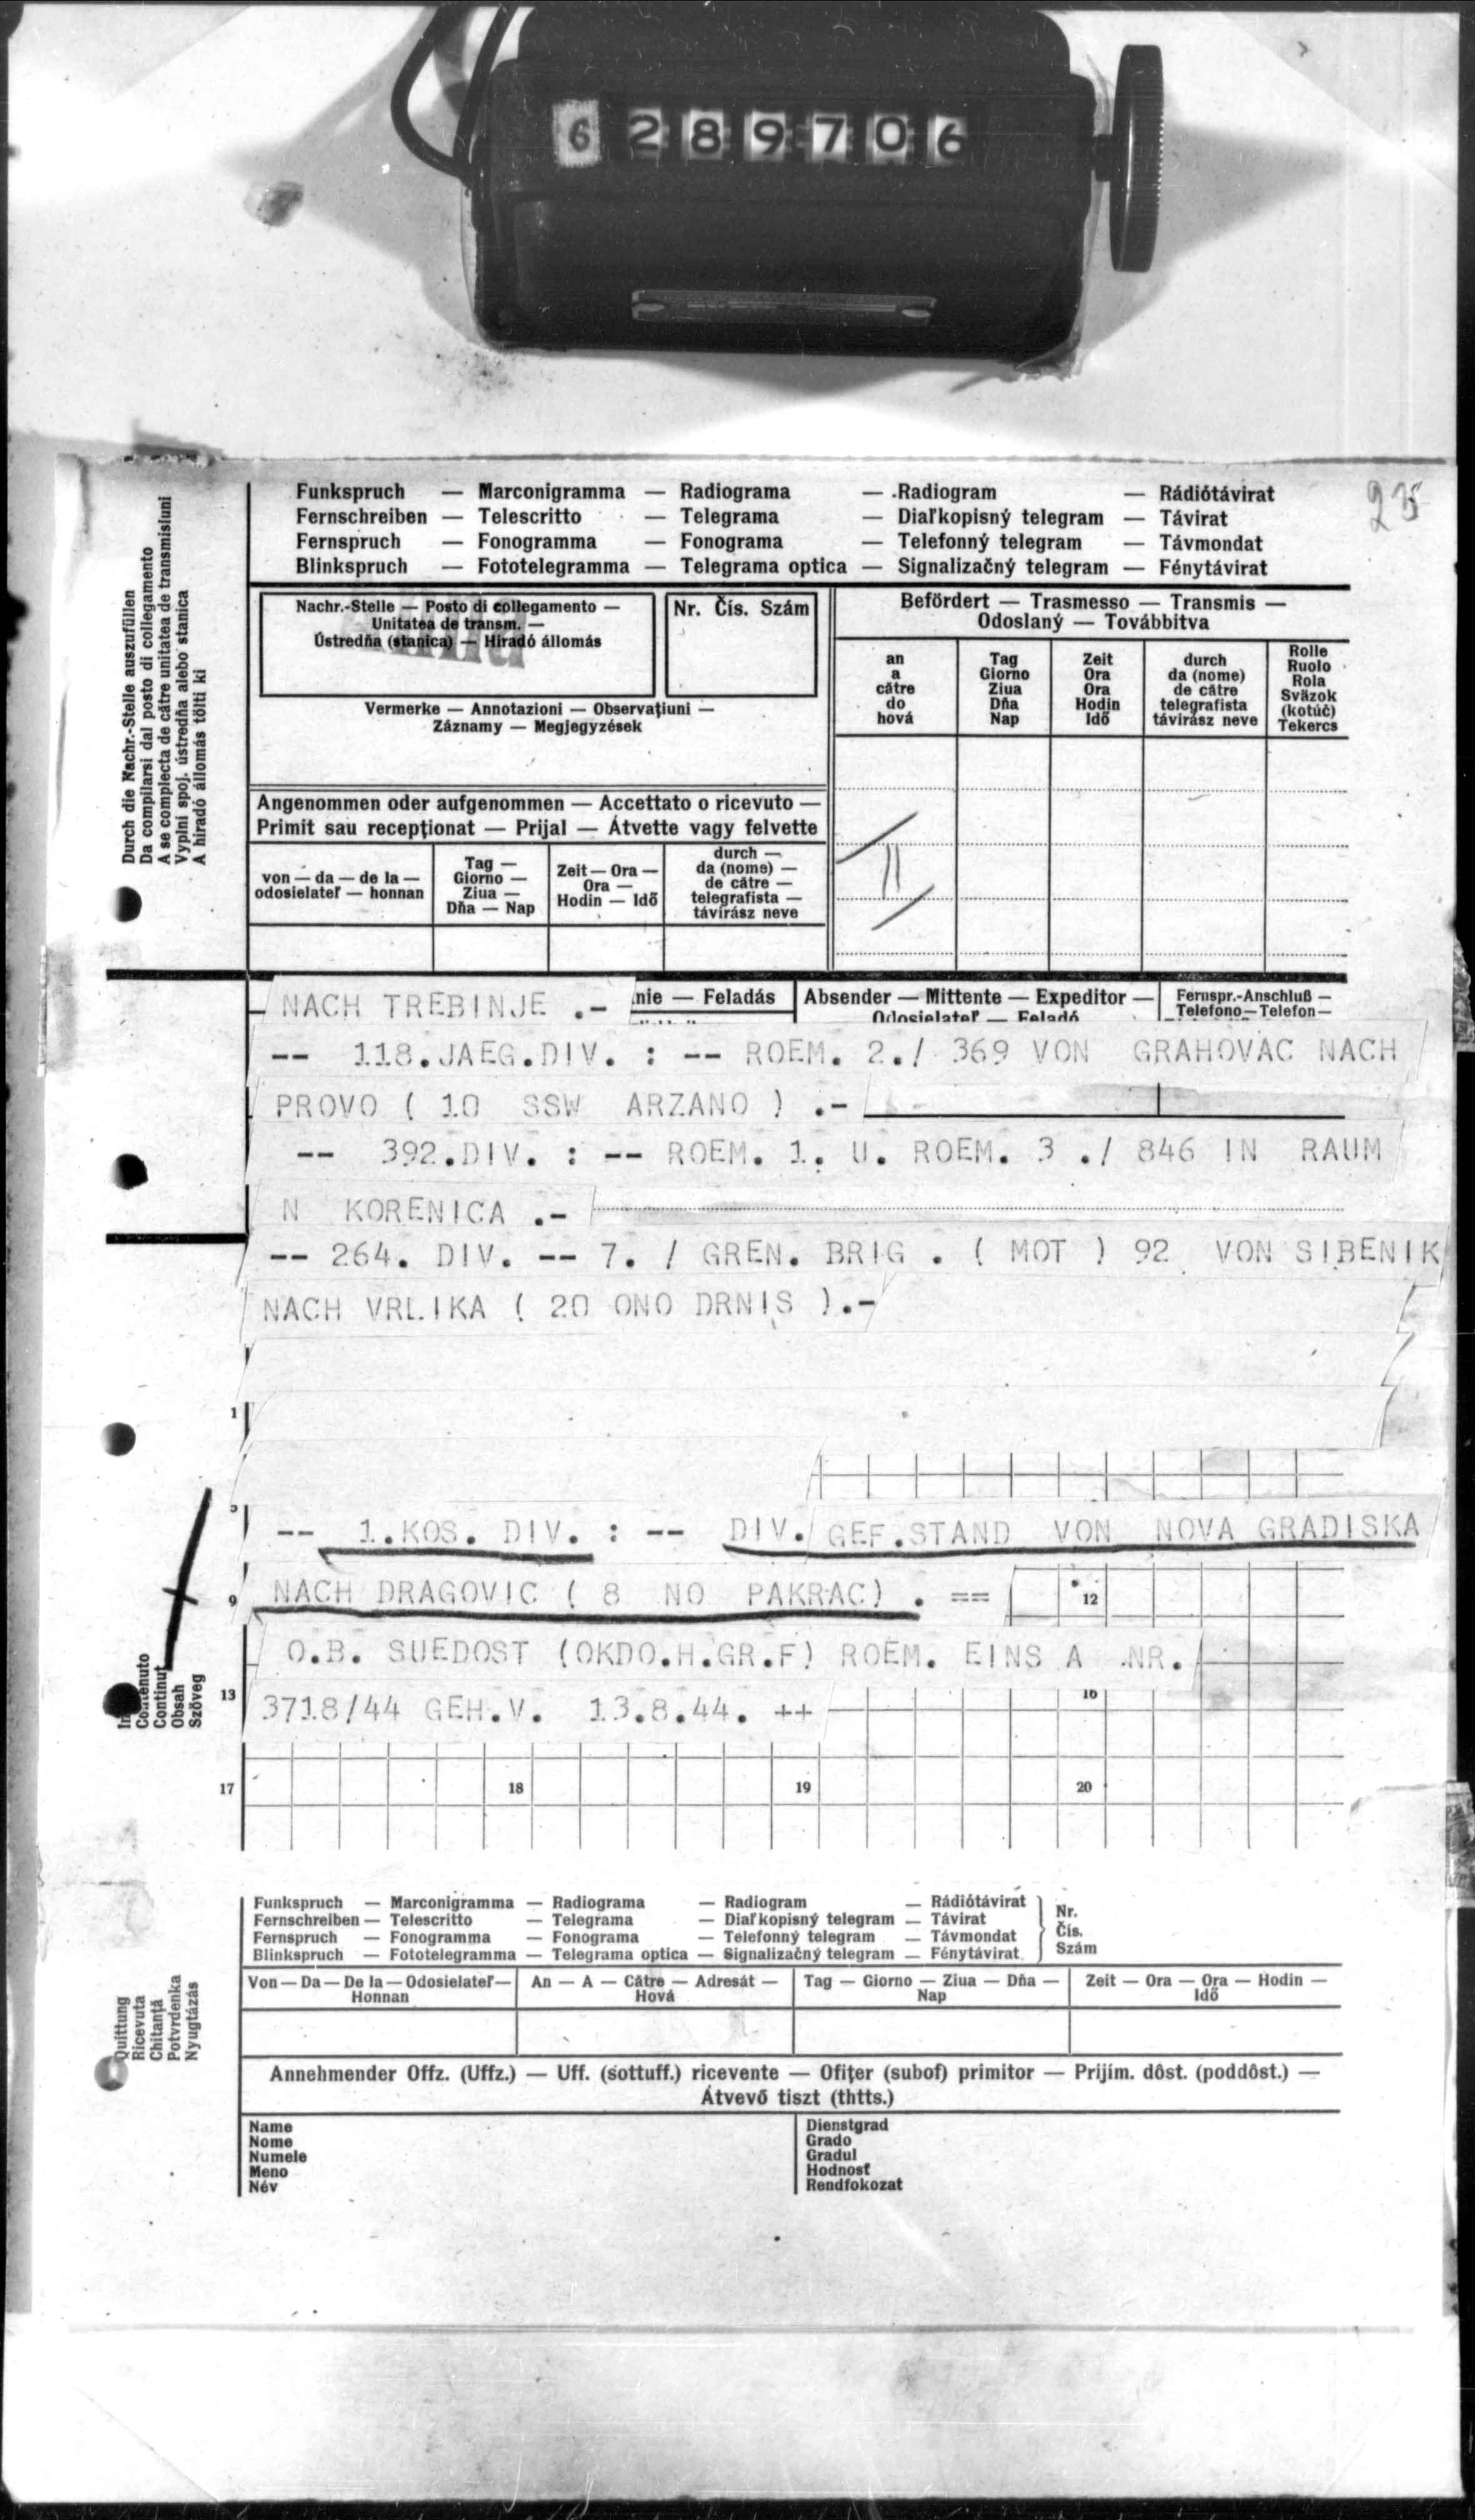 6289706
Funkspruch — Marconigramma — Radiograma — Radiogram — Rádiótávirat
Fernschreiben — Telescritto — Telegrama — Diaľkopisný telegram — Távirat
Fernspruch — Fonogramma — Fonograma — Telefonný telegram — Távmondat
Blinkspruch — Fototelegramma — Telegrama optica — Signalizačný telegram — Fénytávirat
Durch die Nachr.-Stelle auszufüllen
Da compilarsi dal posto di collegamento
A se complecta de către unitatea de transmisiuni
Vyplní spoj. ústredňa alebo stanica
A hiradó állomás tölti ki
Nachr.-Stelle — Posto di collegamento —
Unitatea de transm. —
Ústredňa (stanica) — Hiradó állomás
Nr. Čís. Szám
Vermerke — Annotazioni — Observațiuni —
Záznamy — Megjegyzések
Befördert — Trasmesso — Transmis —
Odoslaný — Továbbitva
an
a
către
do
hová
Tag
Giorno
Ziua
Dňa
Nap
Zeit
Ora
Ora
Hodin
Idő
durch
da (nome)
de către
telegrafista
távirász neve
Rolle
Ruolo
Rola
Sväzok
(kotúč)
Tekercs
Angenommen oder aufgenommen — Accettato o ricevuto —
Primit sau recepționat — Prijal — Átvette vagy felvette
von — da — de la —
odosielateľ — honnan
Tag —
Giorno —
Ziua —
Dňa — Nap
Zeit — Ora —
Ora —
Hodin — Idő
durch —
da (nome) —
de către —
telegrafista —
távirász neve
NACH TREBINJE .-
nie — Feladás
Absender — Mittente — Expeditor —
Odosielateľ — Feladó
Fernspr.-Anschluß —
Telefono — Telefon —
-- 118.JAEG.DIV. : -- ROEM. 2./ 369 VON GRAHOVAC NACH
PROVO ( 10 SSW ARZANO ) .-
-- 392.DIV. : -- ROEM. 1. U. ROEM. 3 ./ 846 IN RAUM
N KORENICA .-
-- 264. DIV. -- 7. / GREN. BRIG . ( MOT ) 92 VON SIBENIK
NACH VRLIKA ( 20 ONO DRNIS ).-
1
-- 1.KOS. DIV. : -- DIV. GEF.STAND VON NOVA GRADISKA
9
NACH DRAGOVIC ( 8 NO PAKRAC) . ==
12
O.B. SUEDOST (OKDO.H.GR.F) ROEM. EINS A NR.
13
3718/44 GEH.V. 13.8.44. ++
16
Contenuto
Continut
Obsah
Szöveg
17 18 19 20
Funkspruch — Marconigramma — Radiograma — Radiogram — Rádiótávirat
Fernschreiben — Telescritto — Telegrama — Diaľkopisný telegram — Távirat
Fernspruch — Fonogramma — Fonograma — Telefonný telegram — Távmondat
Blinkspruch — Fototelegramma — Telegrama optica — Signalizačný telegram — Fénytávirat
Nr.
Čís.
Szám
Quittung
Ricevuta
Chitanță
Potvrdenka
Nyugtázás
Von — Da — De la — Odosielateľ —
Honnan
An — A — Către — Adresát —
Hová
Tag — Giorno — Ziua — Dňa —
Nap
Zeit — Ora — Ora — Hodin —
Idő
Annehmender Offz. (Uffz.) — Uff. (sottuff.) ricevente — Ofițer (subof) primitor — Prijím. dôst. (poddôst.) —
Átvevő tiszt (thtts.)
Name
Nome
Numele
Meno
Név
Dienstgrad
Grado
Gradul
Hodnosť
Rendfokozat